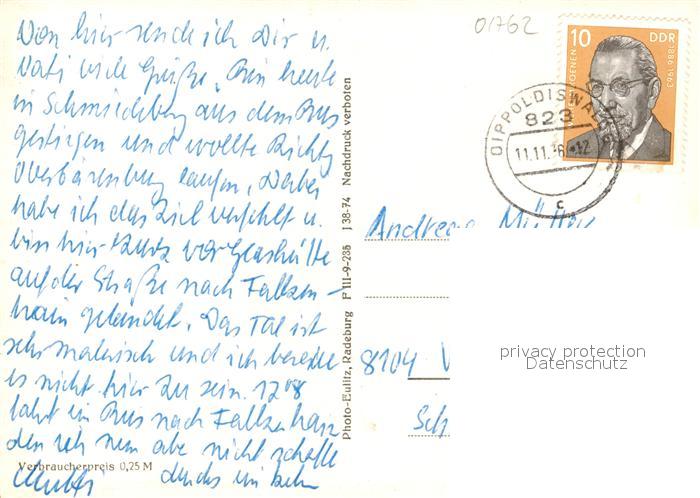 Von hier sende ich Dir u.
Vati viele Grüße. Bin heute
in Schmiedeberg aus dem Bus
gestiegen und wollte Richtg
Oberbärenburg laufen. Dabei
habe ich das Ziel verfehlt u.
bin hier kurz vor Glashütte
auf der Straße nach Falken-
hain gelandet. Das Tal ist
sehr malerisch und ich bereue
es nicht hier zu sein. 12⁰⁸
fährt ein Bus nach Falkenhain
den ich nun aber nicht schaffe
Mutti
Verbraucherpreis 0,25 M
Photo-Eulitz, Radeburg F III-9-235 J 38-74 Nachdruck verboten
01762
10 DDR
1886-1963
DIPPOLDISWAL
823
11.11.76-12
c
Andrea
8104
Sch
privacy protection
Datenschutz